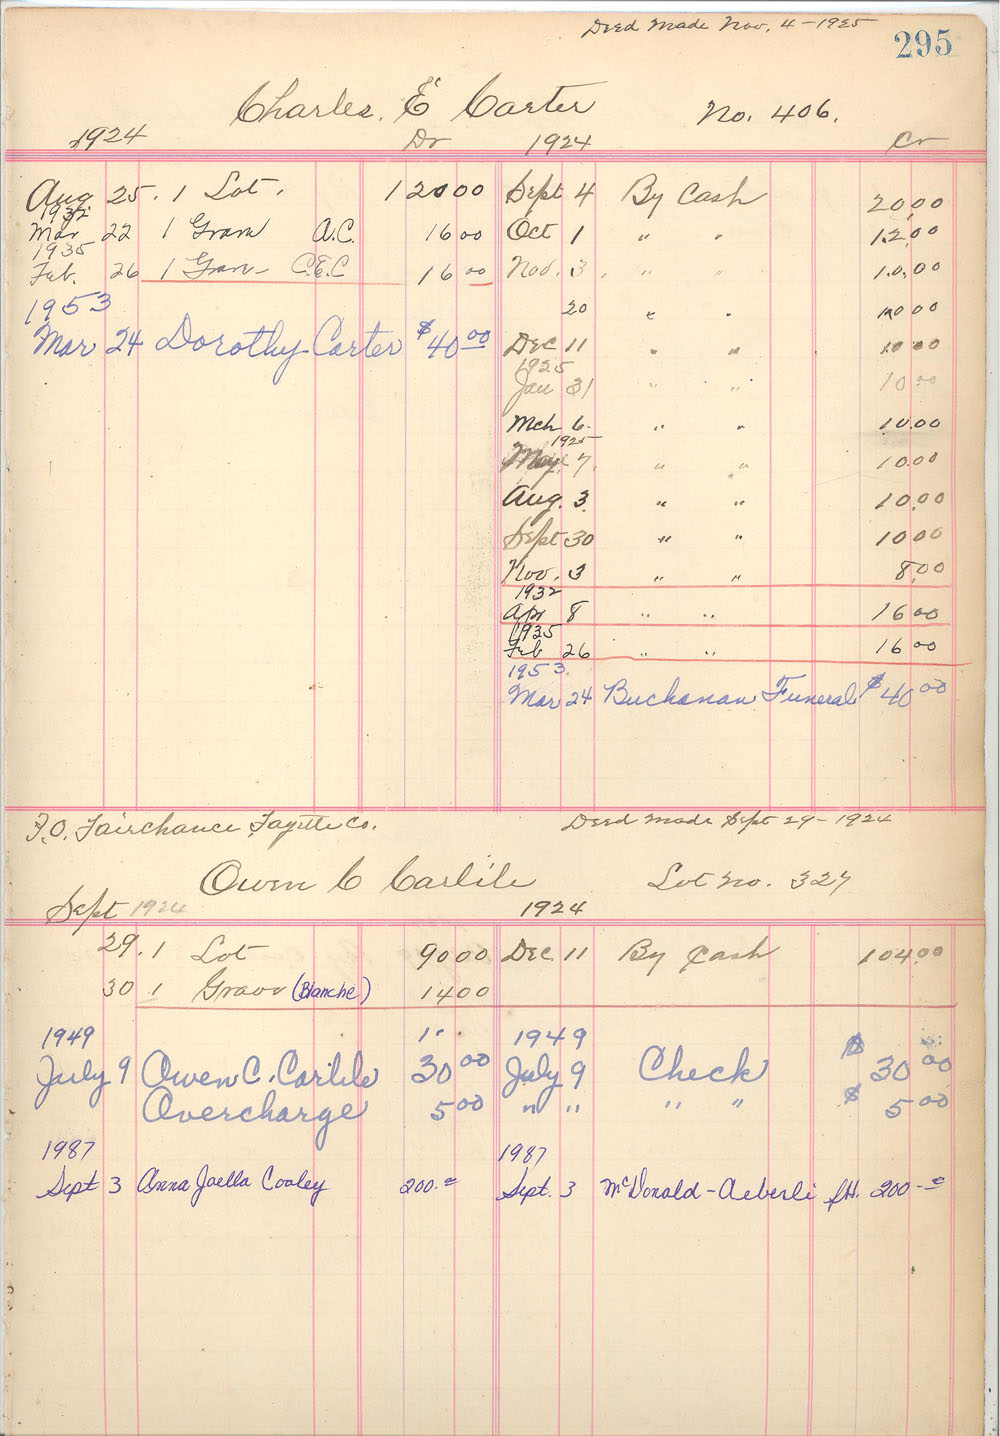 Deed Made Nov. 4 - 1925
295
Charles. E Carter No. 406.
1924 Dr 1924 Cr
Aug 25. 1 Lot. 120 00 Sept 4 By Cash 20.00
1932
Mar 22 1 Grave A.C. 16 00 Oct 1 " " 12.00
1935
Feb. 26 1 Grave C.E.C 16 00 Nov. 3. " " 10.00
1953 20 " " 10 00
Mar 24 Dorothy Carter $40 00 Dec 11 " " 10 00
1925
Jan 31 " " 10 00
Mch 6- " " 10.00
1925
May 7. " " 10.00
Aug. 3. " " 10.00
Sept 30 " " 10 00
Nov. 3 " " 8.00
1932
Apr 8 " " 16 00
1935
Feb 26 " " 16 00
1953.
Mar 24 Buchanan Funeral $40 00
P.O. Fairchance Fayette Co. Deed Made Sept 29 - 1924
Owen C Carlile Lot No. 327
Sept 1924 1924
29. 1 Lot 90 00 Dec 11 By Cash 104.00
30 1 Grave (Blanche) 14 00
1949 1949
July 9 Owen C. Carlile 30 00 July 9 Check $ 30 00
Overcharge 5 00 " " " " $ 5 00
1987 1987
Sept 3 Anna Joella Cooley 200.= Sept. 3 McDonald - Aeberli f.H. 200 -=